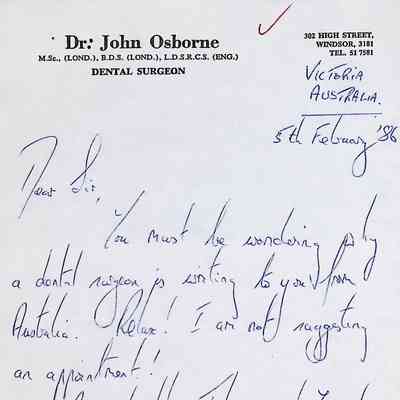 Dr. John Osborne
M.Sc., (LOND.), B.D.S. (LOND.), L.D.S.R.C.S. (ENG.)
DENTAL SURGEON
302 HIGH STREET,
WINDSOR, 3181
TEL. 51 7581
VICTORIA
AUSTRALIA.
5th February '86
Dear Sir,
You must be wondering why
a dental surgeon is writing to you from
Australia. Relax! I am not suggesting
an appointment!